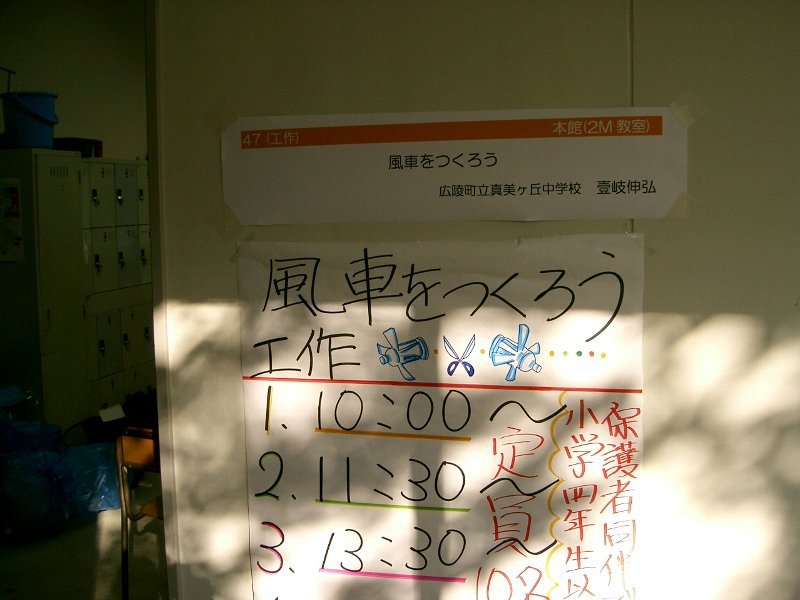 47 (工作)
本館(2M 教室)
風車をつくろう
広陵町立真美ヶ丘中学校 壹岐伸弘
風車をつくろう
工作
1. 10:00 〜
2. 11:30 〜
3. 13:30 〜
定員10名
小学四年生以
保護者同伴